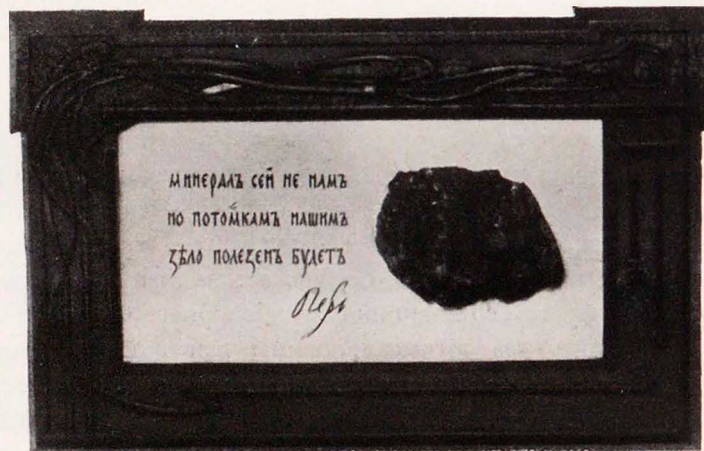 минералъ сей не намъ
но потомкамъ нашимъ
ѕѣло полезенъ будетъ